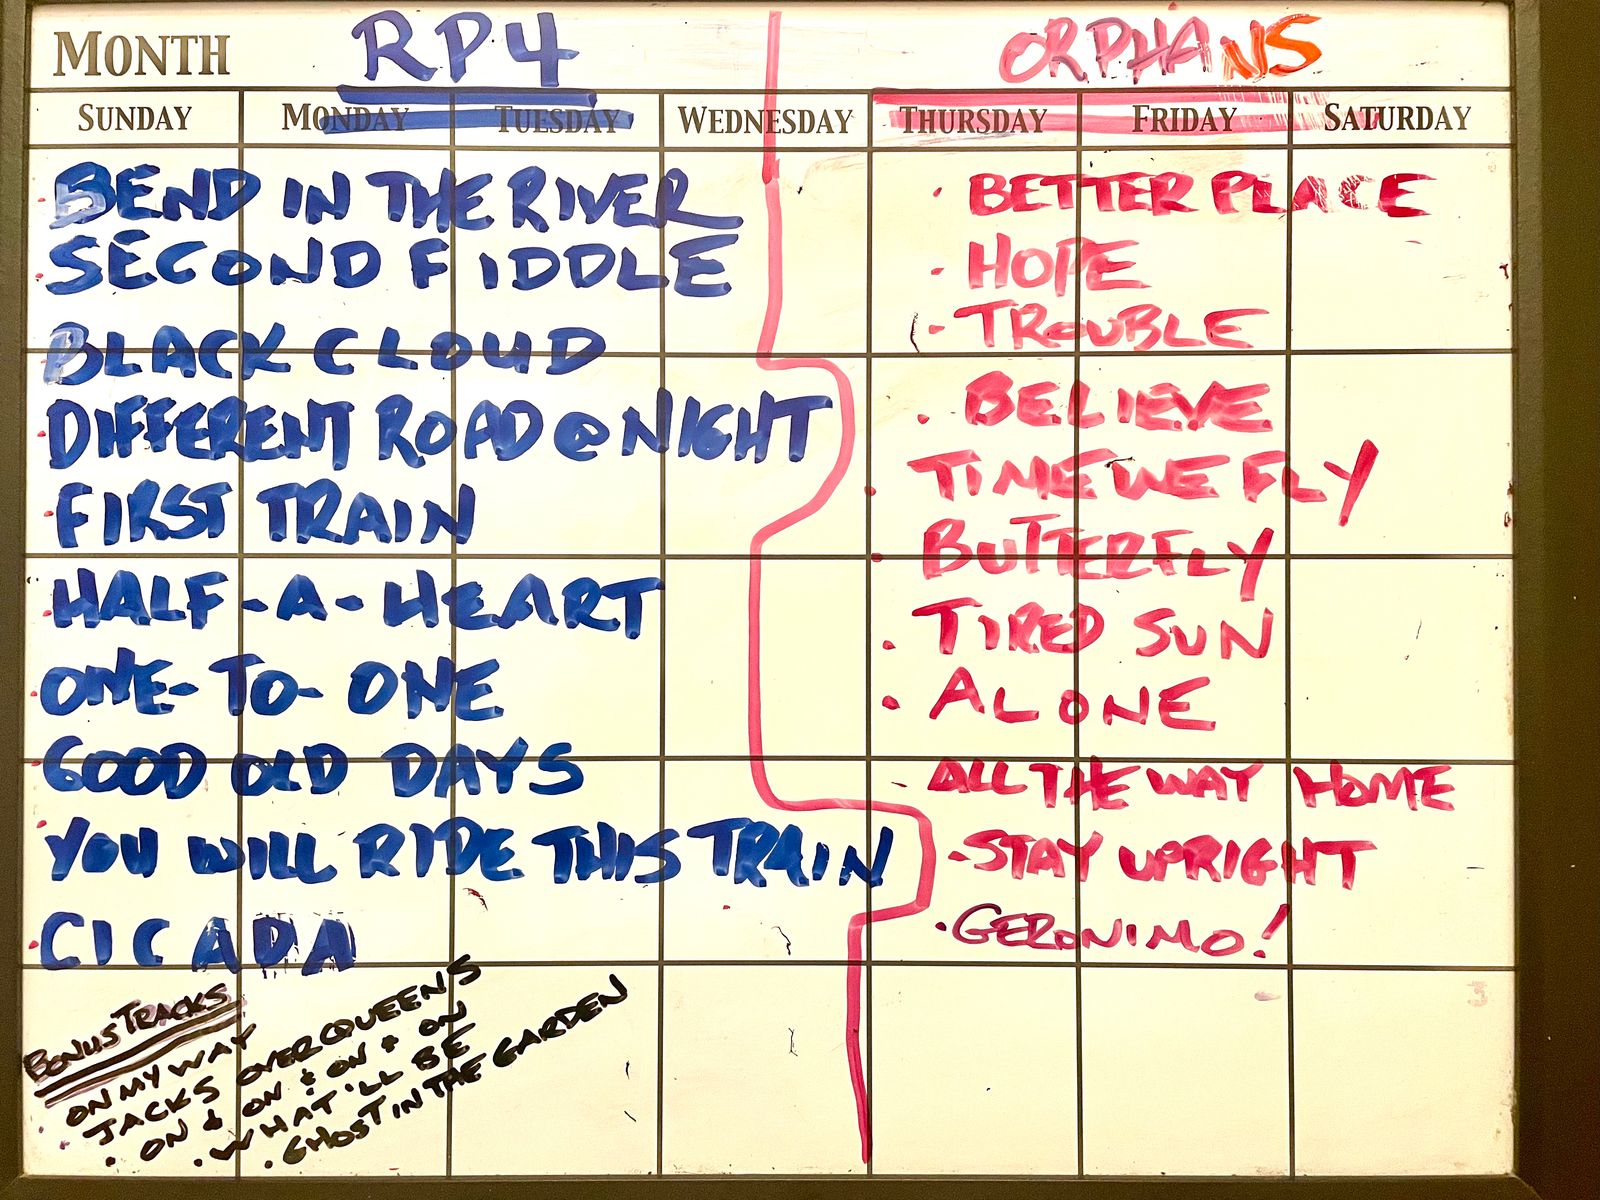 MONTH RP4 ORPHANS
SUNDAY MONDAY TUESDAY WEDNESDAY THURSDAY FRIDAY SATURDAY
BEND IN THE RIVER
SECOND FIDDLE
BLACK CLOUD
DIFFERENT ROAD @ NIGHT
FIRST TRAIN
HALF-A-HEART
ONE-TO-ONE
GOOD OLD DAYS
YOU WILL RIDE THIS TRAIN
CICADA
BONUS TRACKS
ON MY WAY
JACKS OVER QUEENS
· ON & ON & ON & ON
· WHAT'LL BE
· GHOST IN THE GARDEN
· BETTER PLACE
· HOPE
· TROUBLE
· BELIEVE
· TIME WE FLY
· BUTTERFLY
· TIRED SUN
· ALONE
ALL THE WAY HOME
-STAY UPRIGHT
· GERONIMO!